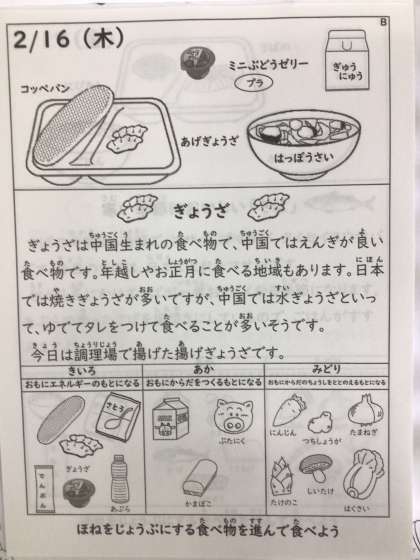 B
2/16(木)
ミニぶどうゼリー
プラ
ぎゅう
にゅう
コッペパン
あげぎょうざ
はっぽうさい
ぎょうざ
ぎょうざは中国生まれの食べ物で、中国ではえんぎが良い
食べ物です。年越しやお正月に食べる地域もあります。日本
では焼きぎょうざが多いですが、中国では水ぎょうざといっ
て、ゆでてタレをつけて食べることが多いそうです。
今日は調理場で揚げた揚げぎょうざです。
きいろ
おもにエネルギーのもとになる
あか
おもにからだをつくるもとになる
みどり
おもにからだのちょうしをととのえるもとになる
さとう
ぎょうざ
でんぷん
あぶら
ぶたにく
かまぼこ
にんじん
つちしょうが
たまねぎ
たけのこ
しいたけ
はくさい
ほねをじょうぶにする食べ物を進んで食べよう